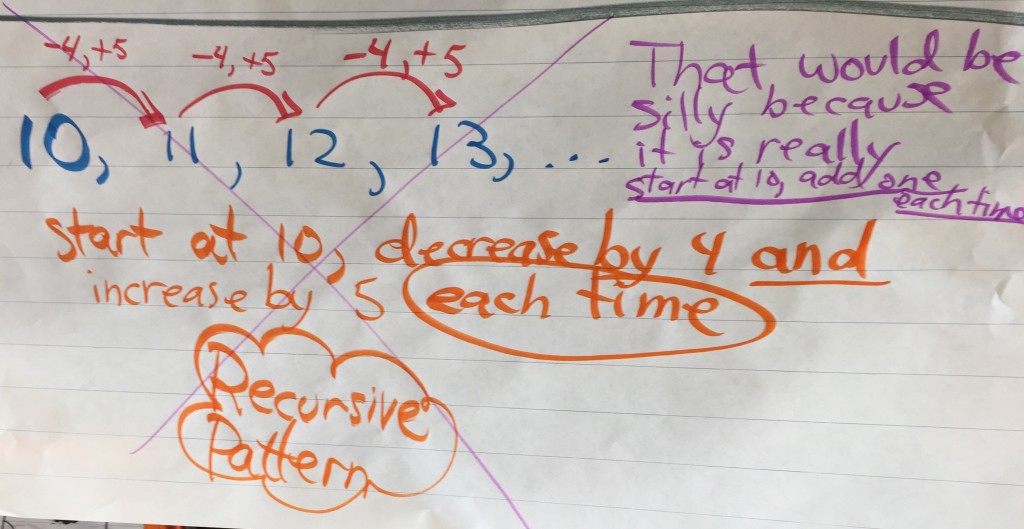 -4,+5 -4,+5 -4,+5
10, 11, 12, 13, ...
That would be
silly because
it is really
start at 10, add one
each time
start at 10, decrease by 4 and
increase by 5 each time
Recursive
Pattern